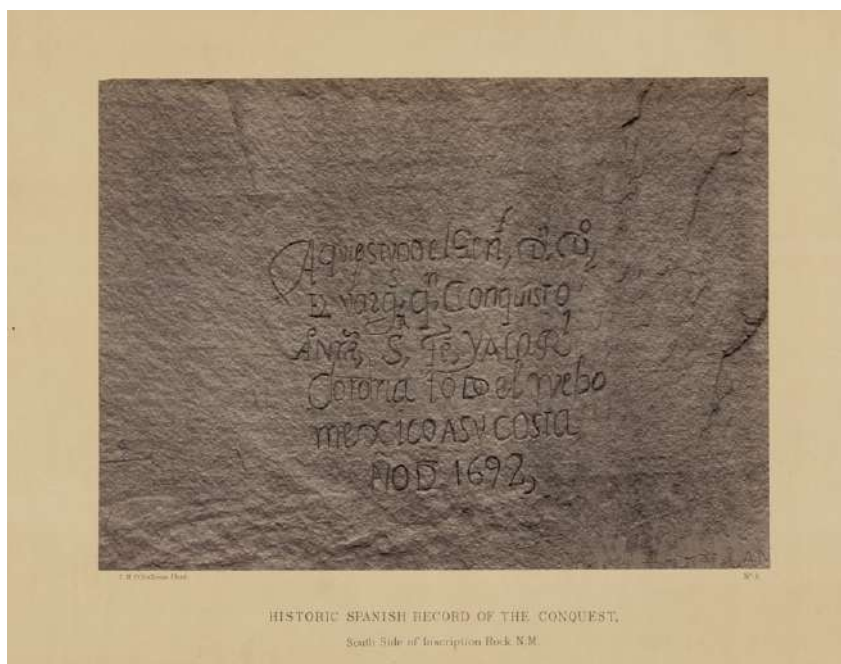 Aqui estuvo el Genl, Dn, Do,
DE Vargs, qn, Conquisto
Å Ntra, S, Fe, YALARl
Corona todo el nuebo
mexico ASU COSTA
ÑOD 1692,
T. H. O'Sullivan Phot.
No. 8.
HISTORIC SPANISH RECORD OF THE CONQUEST,
South Side of Inscription Rock N.M.